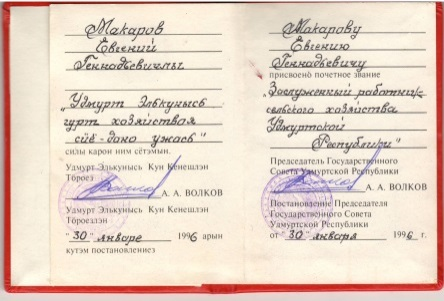 Макаров
Евгений
Геннадьевичлы
„Удмурт Элькунысь
гурт хозяйствоя
сйё-дано ужась"
силы карон ним сётэмын.
Удмурт Элькунысь Кун Кенешлэн
Тöроез
А. А. ВОЛКОВ
Удмурт Элькунысь Кун Кенешлэн
Тöроезлэн
"30" январе 1996 арын
кутэм постановлениез
Макарову
Евгению
Геннадьевичу
присвоено почетное звание
„Заслуженный работник
сельского хозяйства
Удмуртской
Республики"
Председатель Государственного
Совета Удмуртской Республики
А. А. ВОЛКОВ
Постановление Председателя
Государственного Совета
Удмуртской Республики
от "30" января 1996 г.